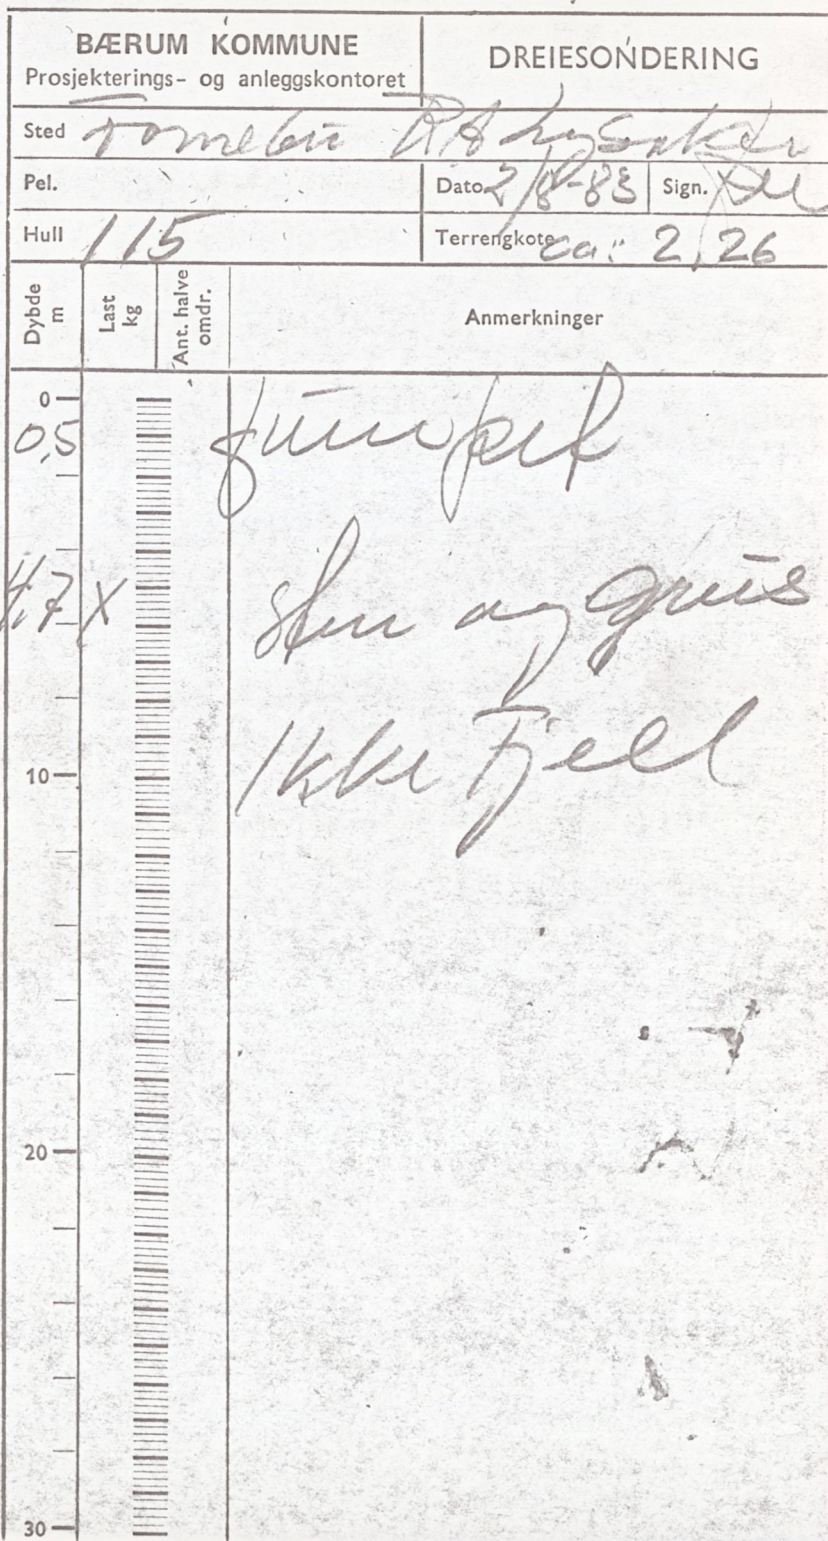 BÆRUM KOMMUNE
Prosjekterings- og anleggskontoret
DREIESONDERING
Sted Fornebu RA Lysaker
Pel.
Dato 2/8-83 Sign.
Hull 115
Terrengkote ca: 2,26
Dybde m
Last kg
Ant. halve omdr.
Anmerkninger
0
0,5
4,7 X sten og grus
10 Ikke Fjell
20
30